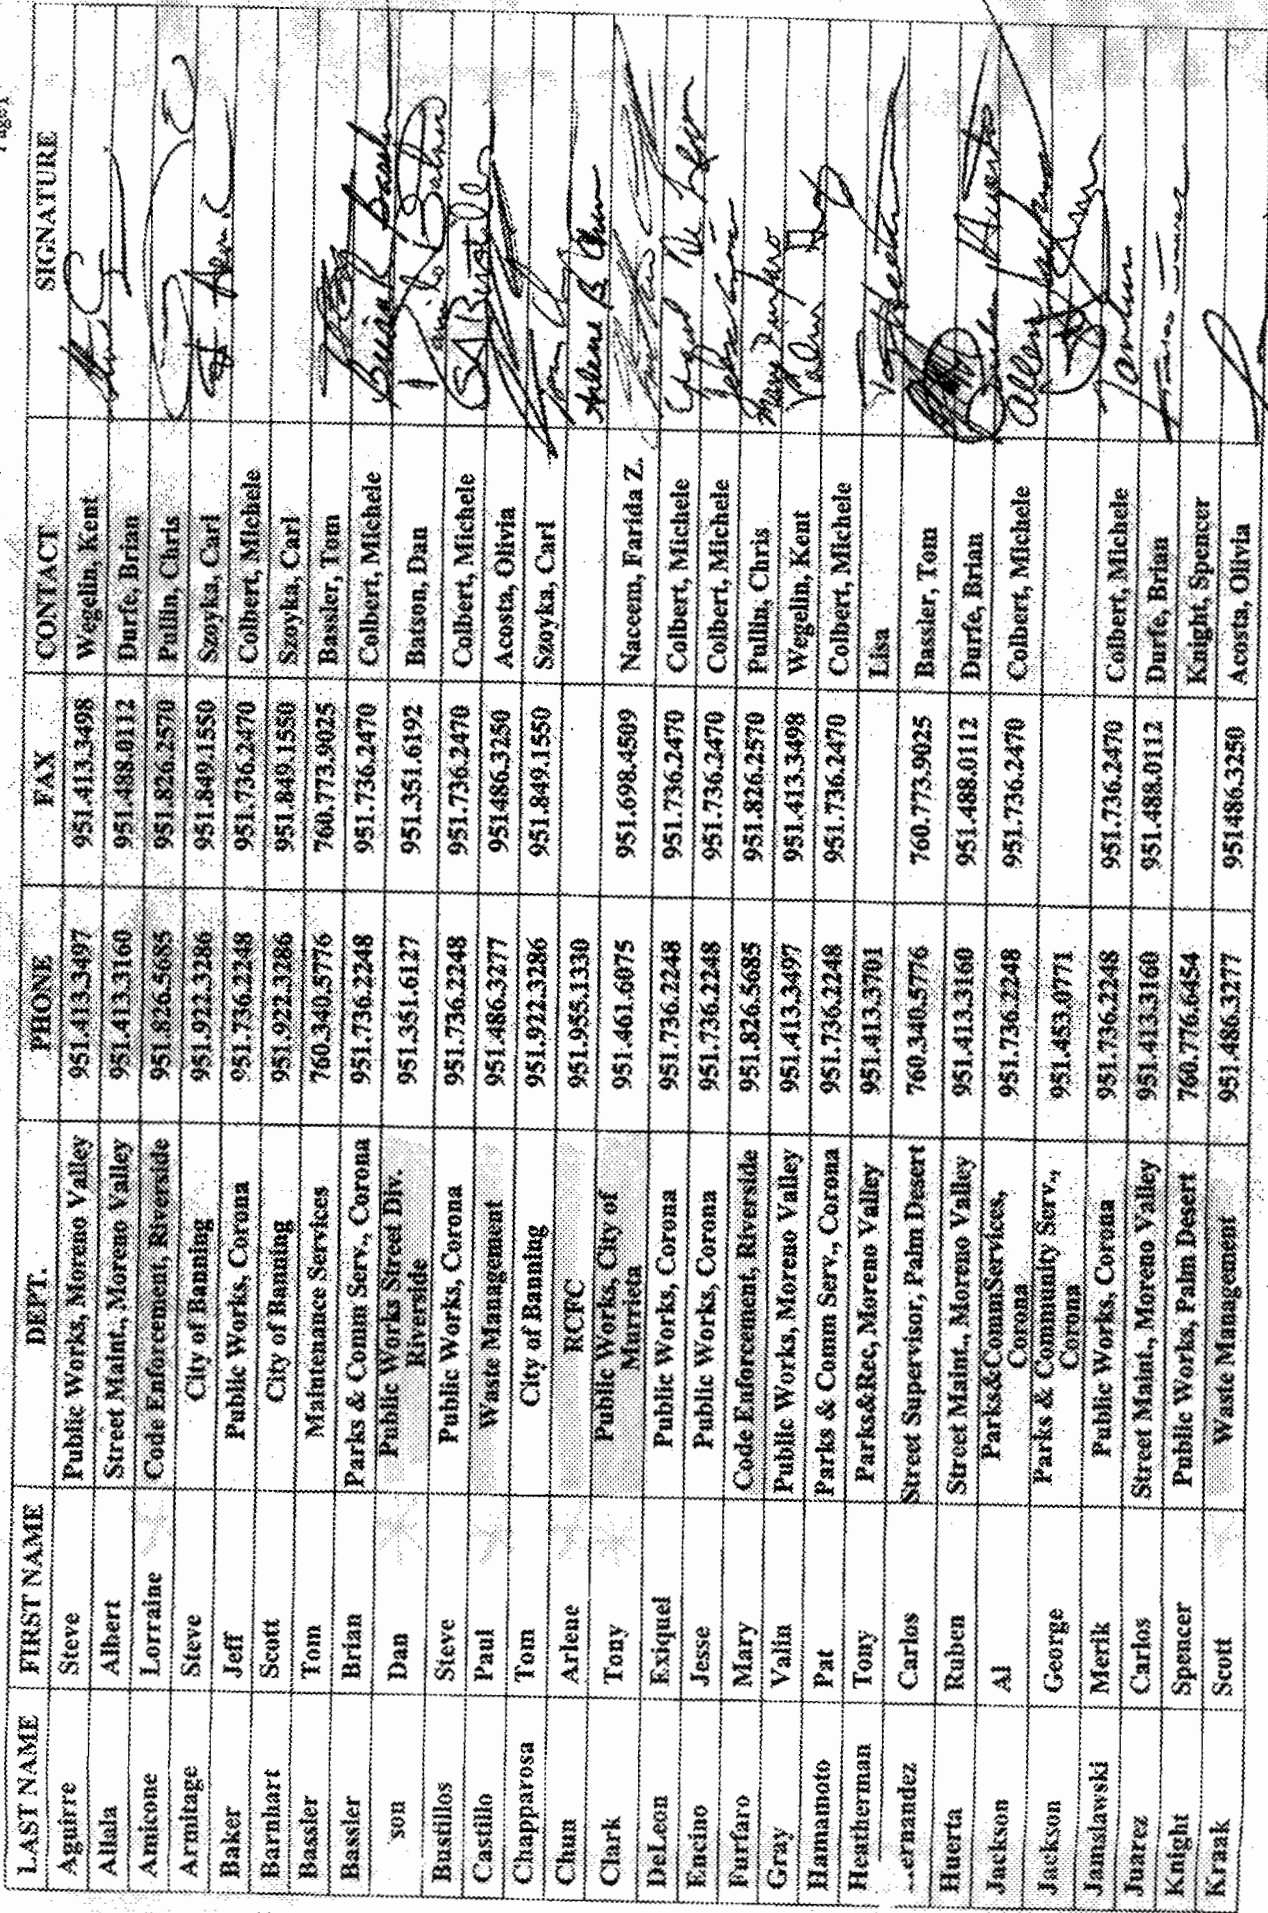 Page1
LAST NAME FIRST NAME DEPT. PHONE FAX CONTACT SIGNATURE
Aguirre Steve Public Works, Moreno Valley 951.413.3497 951.413.3498 Wegelin, Kent
Allala Albert Street Maint., Moreno Valley 951.413.3160 951.488.0112 Durfe, Brian
Amicone Lorraine Code Enforcement, Riverside 951.826.5685 951.826.2570 Pullin, Chris
Armitage Steve City of Banning 951.922.3286 951.849.1550 Szoyka, Carl
Baker Jeff Public Works, Corona 951.736.2248 951.736.2470 Colbert, Michele
Barnhart Scott City of Banning 951.922.3286 951.849.1550 Szoyka, Carl
Bassler Tom Maintenance Services 760.340.5776 760.773.9025 Bassler, Tom
Bassler Brian Parks & Comm Serv., Corona 951.736.2248 951.736.2470 Colbert, Michele
son Dan Public Works Street Div. Riverside 951.351.6127 951.351.6192 Batson, Dan
Bustillos Steve Public Works, Corona 951.736.2248 951.736.2470 Colbert, Michele
Castillo Paul Waste Management 951.486.3277 951486.3250 Acosta, Olivia
Chapparosa Tom City of Banning 951.922.3286 951.849.1550 Szoyka, Carl
Chun Arlene RCFC 951.955.1330 Arlene B. Chun
Clark Tony Public Works, City of Murrieta 951.461.6075 951.698.4509 Naceem, Farida Z.
DeLeon Exiquel Public Works, Corona 951.736.2248 951.736.2470 Colbert, Michele
Encino Jesse Public Works, Corona 951.736.2248 951.736.2470 Colbert, Michele
Furfaro Mary Code Enforcement, Riverside 951.826.5685 951.826.2570 Pullin, Chris Mary Furfaro
Gray Valin Public Works, Moreno Valley 951.413.3497 951.413.3498 Wegelin, Kent Valin
Hamamoto Pat Parks & Comm Serv., Corona 951.736.2248 951.736.2470 Colbert, Michele
Heatherman Tony Parks&Rec, Moreno Valley 951.413.3701 Lisa
ernandez Carlos Street Supervisor, Palm Desert 760.340.5776 760.773.9025 Bassler, Tom
Huerta Ruben Street Maint., Moreno Valley 951.413.3160 951.488.0112 Durfe, Brian
Jackson Al Parks&CommServices, Corona 951.736.2248 951.736.2470 Colbert, Michele
Jackson George Parks & Community Serv., Corona 951.453.0771
Jamslawski Merik Public Works, Corona 951.736.2248 951.736.2470 Colbert, Michele
Juarez Carlos Street Maint., Moreno Valley 951.413.3160 951.488.0112 Durfe, Brian
Knight Spencer Public Works, Palm Desert 760.776.6454 Knight, Spencer
Kraak Scott Waste Management 951.486.3277 951486.3250 Acosta, Olivia